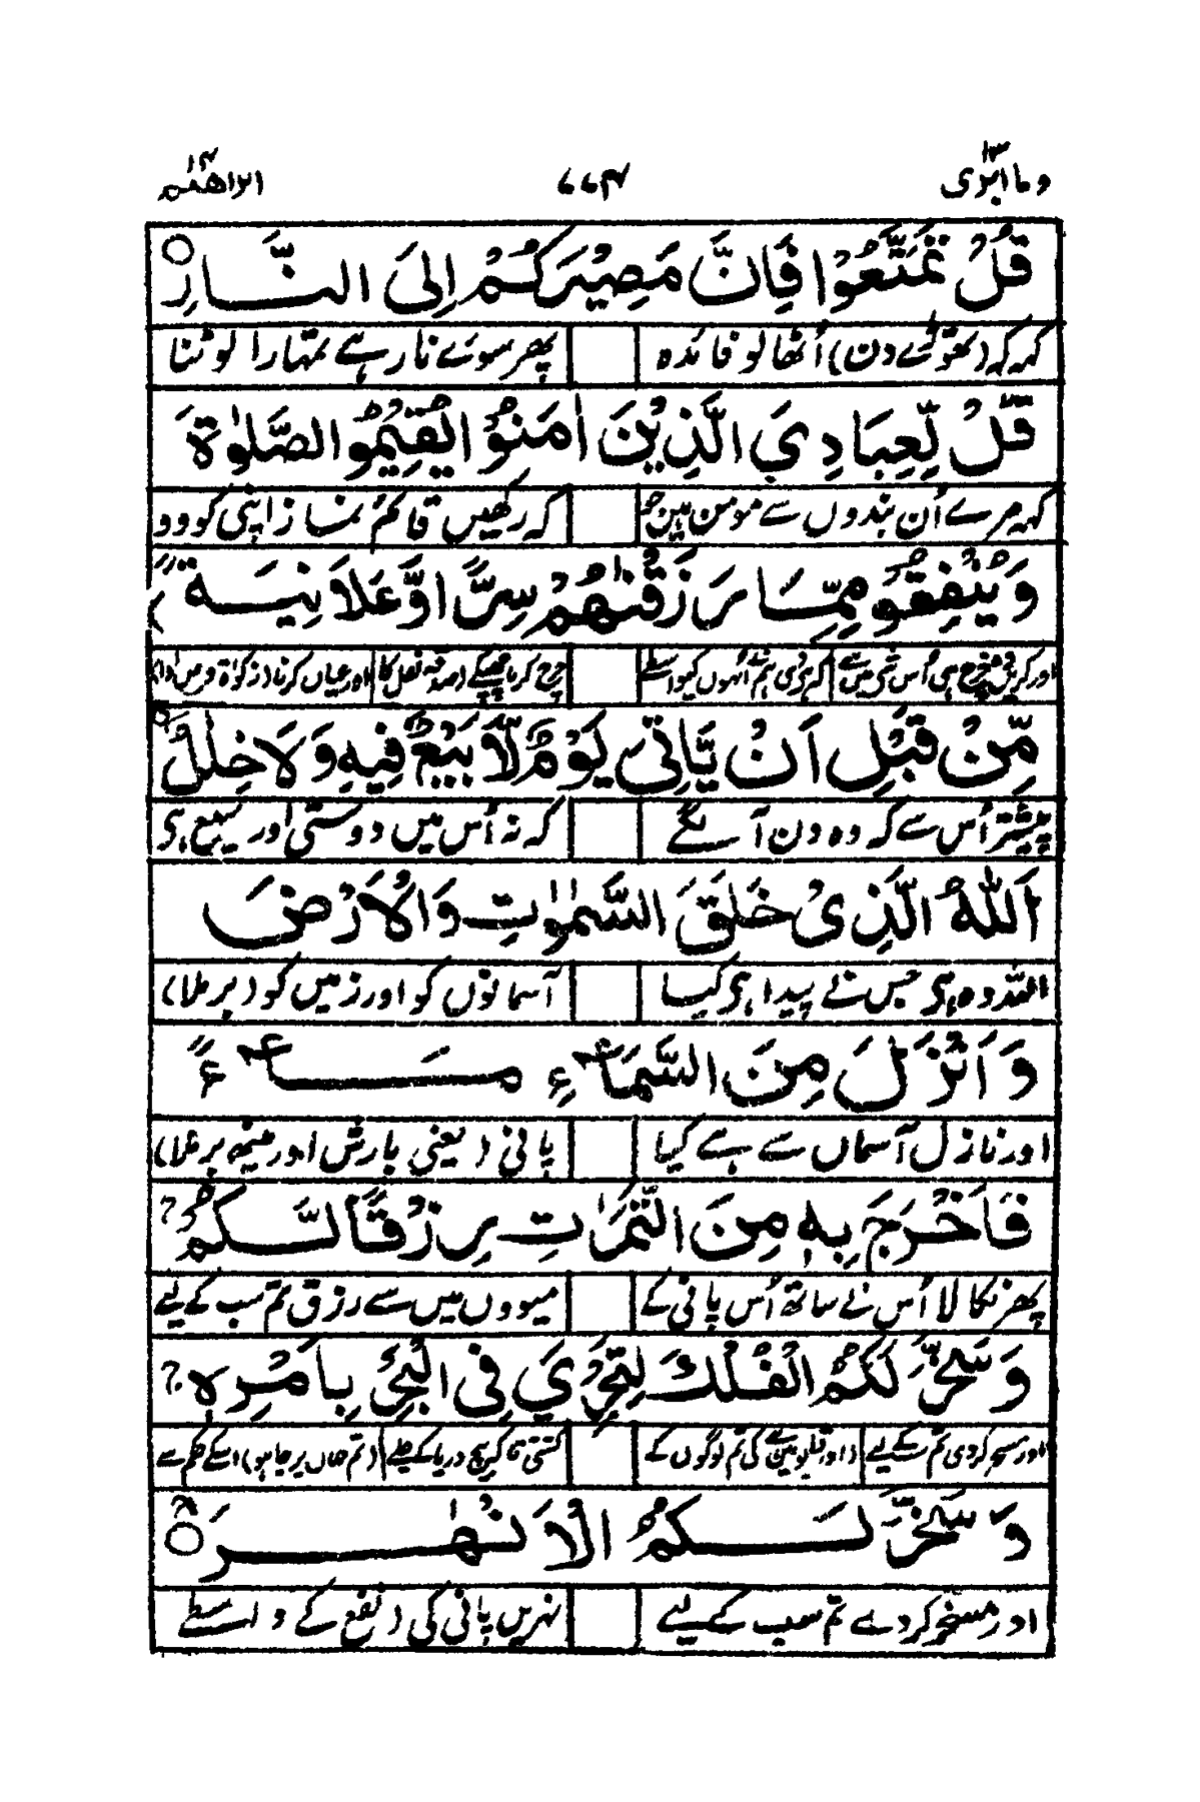 وما ابرئ ١٣ ٧٧٤ ابراهيم ١٤
قُلْ تَمَتَّعُوْا فَاِنَّ مَصِيْرَكُمْ اِلَى النَّارِ ○
کہہ کہ (تھوڑے دن) اُٹھا لو فائدہ پھر سوئے نار ہے تمہارا لوٹنا
قُلْ لِّعِبَادِيَ الَّذِيْنَ اٰمَنُوْا يُقِيْمُوا الصَّلٰوةَ
کہہ مرے اُن بندوں سے مومن ہیں جو کہ رکھیں قائم نماز اپنی کو وو
وَيُنْفِقُوْا مِمَّا رَزَقْنٰهُمْ سِرًّا وَّعَلَانِيَةً
اور کریں خرچ بھی اُس شی میں سے کہ جو دی ہم نے اُنہوں کیواسطے خرچ کرنا چھپکے (صدقہ نفل کا اور عیاں کرنا (زکوٰۃ فرض
مِّنْ قَبْلِ اَنْ يَّاْتِيَ يَوْمٌ لَّا بَيْعٌ فِيْهِ وَلَا خِلٰلٌ
پیشتر اُس سے کہ وہ دن آئے گے کہ نہ اُس میں دوستی اور بیع ہی
اَللّٰهُ الَّذِيْ خَلَقَ السَّمٰوٰتِ وَالْاَرْضَ
اللہ وہ ہی جس نے پیدا ہی کیا آسمانوں کو اور زمیں کو (برملا)
وَاَنْزَلَ مِنَ السَّمَآءِ مَآءً
اور نازل آسماں سے ہے کیا پانی (یعنی بارش اور مینھ برملا)
فَاَخْرَجَ بِهٖ مِنَ الثَّمَرٰتِ رِزْقًا لَّكُمْ
پھر نکالا اُس نے ساتھ اُس پانی کے میووں میں سے رزق تم سب کے لیے
وَسَخَّرَ لَكُمُ الْفُلْكَ لِتَجْرِيَ فِي الْبَحْرِ بِاَمْرِهٖ
اور مسخر کردی تم سب کے لیے (اور قابو میں کی تم لوگوں کے کشتی تاکہ بیچ دریا کے چلے (تم جہاں پر چاہو) اسکے حکم سے
وَسَخَّرَ لَكُمُ الْاَنْهٰرَ ○
اور مسخر کردے تم سب کے لیے نہریں پانی کی (نفع کے واسطے